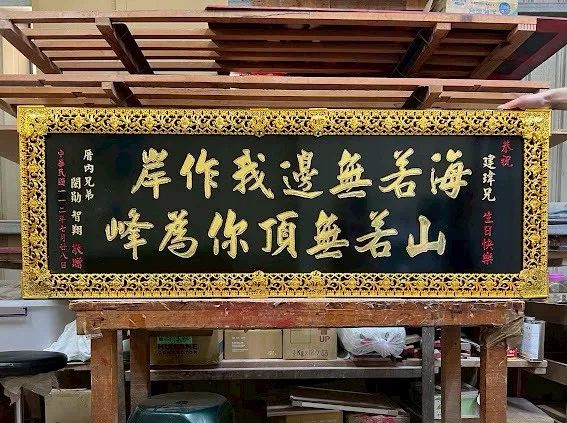 恭祝
建瑋兄 生日快樂
海若無邊我作岸
山若無頂你為峰
厝內兄弟
閎勛 智翔 敬贈
中華民國一一二年七月廿八日
UP